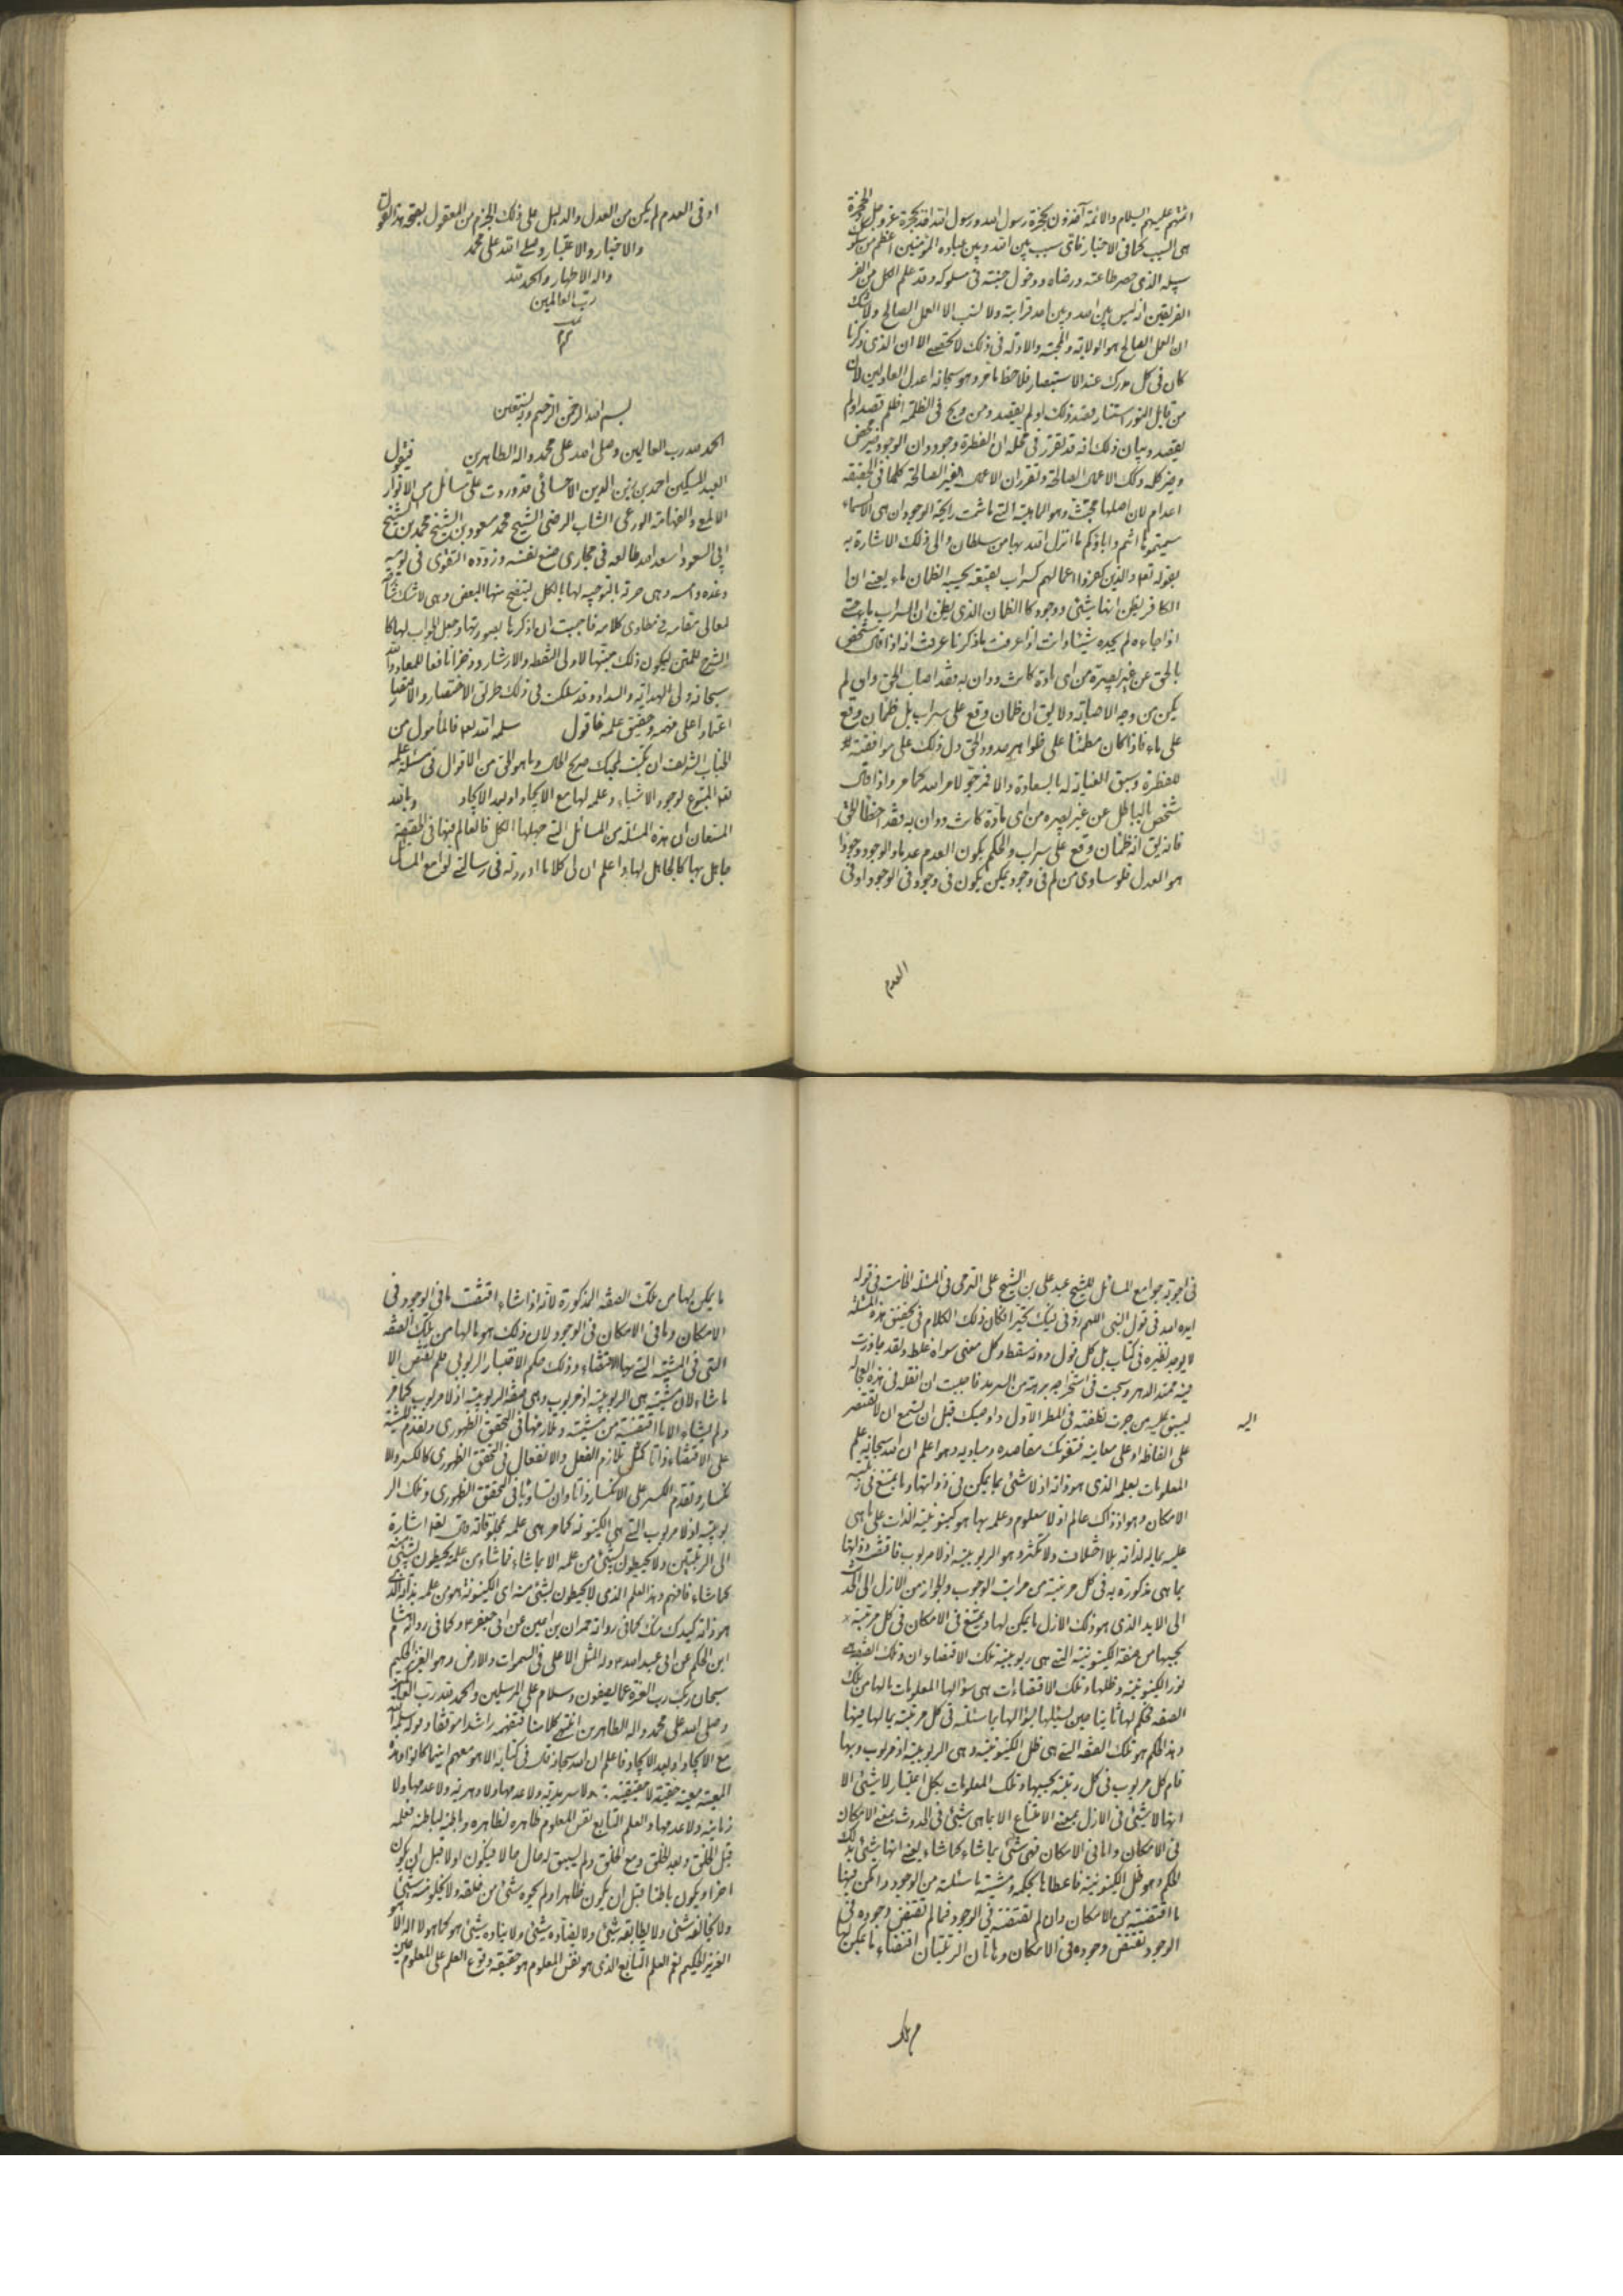 ائمتهم عليهم السلام والائمة آخذون بحجزة رسول الله ورسول الله اخذ بحجزة عز وجل والحجزة
هى السبب كما فى الاخبار فاى سبب بين الله وبين عباده المؤمنين اعظم من سلوك
سبيله الذى حصر طاعته ورضاه ودخول جنته فى سلوكه وقد علم الكل من
الفريقين انه ليس بين احد وبين الله قرابة ولا نسب الا العمل الصالح ولا شك
ان العمل الصالح هو الولاية والمحبة والادلة فى ذلك لا تحصى الا ان الذى ذكرنا
كان فى كل مدرك عند الاستبصار فلاحظ ما مر وهو سبحانه اعدل العادلين لان
من قابل النور استنار قصد ذلك او لم يقصد ومن ولج فى الظلمة اظلم قصد او لم
يقصد وبيان ذلك انه قد تقرر فى محله ان الفطرة وجود وان الوجود خير محض
وخير كله وكذلك الاعمال الصالحة وتقرر ان الاعمال الغير الصالحة كلها فى الحقيقة
اعدام لان اصلها مجتث وهو الماهية التى ما شمت رايحة الوجود ان هى الا اسماء
سميتموها انتم واباؤكم ما انزل الله بها من سلطان والى ذلك الاشارة
بقوله تعا والذين كفروا اعمالهم كسراب بقيعة يحسبه الظمان ماء يعنى ان
الكافر يظن انها شئ ووجود كالظمان الذى يظن ان السراب ماء حتى
اذا جاءه لم يجده شيئا وانت اذا عرفت ما ذكرنا عرفت انه اذا قال شخص
بالحق عن غير بصيرة من اى مادة كانت ودان به فقد اصاب الحق وان لم
يكن من وجه الاصابة ولا يق ان ظمان وقع على سراب بل ظمان وقع
على ماء فاذا كان مطمئنا على ظواهر حدود الحق دل ذلك على موافقته
للفطرة وسبق العناية له بالسعادة والا فمرجو لامر الله كما مر واذا قال
شخص بالباطل عن غير بصيرة من اى مادة كانت ودان به فقد اخطا الحق
فانه يق انه ظمان وقع على سراب والحكم بكون العدم عدما والوجود وجودا
هو العدل فلو ساوى من لم فى وجود يمكن يكون فى وجود فى الوجود او فى
العدم
او فى العدم لم يكن من العدل والدليل على ذلك الجزم من المعقول بصحة هذا القول
والاخبار والاعتبار وصلى الله على محمد
واله الاطهار والحمد لله
رب العالمين
تمت
بسم الله الرحمن الرحيم وبه نستعين
الحمد لله رب العالمين وصلى الله على محمد واله الطاهرين فيقول
العبد المسكين احمد بن زين الدين الاحسائى قد وردت على مسائل من الانوار
الالمع والفهامة الورعى الشاب الرضى الشيخ محمد مسعود بن الشيخ محمد بن الشيخ
ابى السعود اسعد الله طالعه فى مجارى صنع نفسه وزوده التقوى فى يومه
وغده وامسه وهى حرية بالتوجيه لها بالكل ليتضح منها البعض وهى
لمعالى مقامه فى مطاوى كلامه فاحببت ان اذكرها بصورتها وجعل الجواب لها كا
الشرح للمتن ليكون ذلك مبتها لاولى الفطنة والارشاد وذخرا نافعا للمعاد والله
سبحانه ولى الهداية والسداد وقد سلكت فى ذلك طريق الاختصار والاقتصار
اعتمادا على فهمه وحقيق علمه فاقول سلمه الله تعا فالمأمول من
الجناب الشريف ان يكتب لمحبك صريح الحق وما هو الحق من الاقوال فى مسئلة علمه
تعا المتبوع لوجود الاشياء وعلمه لها مع الايجاد او بعد الايجاد وبالله
المستعان ان هذه المسئلة من المسائل التى جهلها الكل فالعالم فيها فى الحقيقة
جاهل بها كالجاهل لها واعلم ان لى كلاما اوردته فى رسالتى لوامع المسائل
فى اجوبة جوامع المسائل للشيخ عبد على بن الشيخ على التوبلى فى المسئلة الخامسة فى قوله
ايده الله فى قول النبى اللهم زدنى فيك تحيرا لكان ذلك الكلام فى تحقيق هذه المسئلة
لا يوجد نظيره فى كتاب بل كل قول دونه سقط وكل معنى سواه غلط ولقد جاوزت
فيه مبتدا الدهر وسبحت فى استخراجه برهة من السرمد فاحببت ان انقله فى هذه العجالة
ليسبق اليه من جرت نطفته فى المطر الاول واوصيك قبل ان تسمع ان لا تقتصر
على الفاظه او على معاينه فتفوتك مقاصده ومباديه وهو اعلم ان الله سبحانه علم
المعلومات بعلمه الذى هو ذاته اذ لا شئ بما يمكن فى ذواتها وما يمتنع فى رتبة
الامكان وهو اذ ذاك عالم اذ لا معلوم وعلمه بها هو كينونية الذات على ما هى
عليه بما له لذاته بلا اختلاف ولا تكثر وهو الربوبية اذ لا مربوب فاقتضت ذواتها
بما هى مذكورة به فى كل مرتبة من مراتب الوجوب والجواز من الازل الى
الى الابد الذى هو ذلك الازل ما يمكن لها ويمتنع فى الامكان فى كل مرتبة
بحسبها من صفة الكينونية التى هى ربوبية تلك الاقتضاءات وتلك الصفة هى
نور الكينونية وظلها وتلك الاقتضاءات هى سؤالها المعلومات بالهامن تلك
الصفة فحكم لها ثانيا حين سئلها بسؤالها ما سئلته فى كل مرتبة بما لها فيها
وهذا الحكم هو تلك الصفة التى هى ظل الكينونية وهى الربوبية اذ مربوب وبها
قام كل مربوب فى كل رتبة بحسبها وتلك المعلومات بكل اعتبار لا شئ الا
انها لا شئ فى الازل بمعنى الامتناع الا بما هى شئ فى الحدوث بمعنى الامكان
فى الامكان واما فى الامكان فهى شئ بما شاء كما شاء يعنى انها شئ بذلك
الحكم وهو ظل الكينونية فاعطاها بحكمه ومشيته ما سئلته من الوجود وامكن فيها
ما اقتضته من الامكان وان لم تقتضه فى الوجود فما لم تقتض وجوده فى
الوجود تقتضى وجوده فى الامكان وهاتان الرتبتان اقتضاء ما يمكن لها
اليه
ما يمكن لها من تلك الصفة المذكورة لانه اذا شاء اقتضت ما فى الوجود فى
الامكان وما فى الامكان فى الوجود لان ذلك هو ما لها من تلك الصفة
التى فى المشية التى بها الاقتضاء وذلك حكم الاختيار الربوبى فلم تقتض الا
ما شاء لان مشيته هى الربوبية اذ مربوب وهى صفة الربوبية اذ لا مربوب كما مر
ولم يشاء الا ما اقتضته من مشيته وتلازمها فى التحقق الظهورى وتقدم المشية
على الاقتضاء ذاتا كمثل تلازم الفعل والانفعال فى التحقق الظهورى كالكسر والا
نكسار وتقدم الكسر على الانكسار ذاتا وان تساوقا فى التحقق الظهورى وتلك الر
بوبية اذ لا مربوب التى هى الكينونة كما مر هى علمه بمخلوقاته قال تعا اشارة
الى الرتبتين ولا يحيطون بشئ من علمه الا بما شاء فما شاء من علمه يحيطون بشئ منه
كما شاء فافهم وهذا العلم الذى لا يحيطون بشئ منه اى الكينونة هو من علمه بذاته الذى
هو ذاته كيدك منك كما فى رواية حمران بن اعين عن ابى جعفر ع وكما فى رواية هشام
ابن الحكم عن ابى عبد الله ع وله المثل الاعلى فى السموات والارض وهو العزيز الحكيم
سبحان ربك رب العزة عما يصفون وسلام على المرسلين والحمد لله رب العالمين
وصلى الله على محمد واله الطاهرين انتهى كلامنا فتفهمه راشدا موفقا وقوله سلمه الله
مع الايجاد او بعد الايجاد فاعلم ان الله سبحانه قال فى كتابه الا هو معهم اينما كانوا وهذه
المعية معية حقيقة لا حقيقية ولا سرمدية ولا عدمها ولا دهرية ولا عدمها ولا
زمانية ولا عدمها والعلم التابع نفس المعلوم ظاهره لظاهره وباطنه لباطنه فعلمه
قبل الخلق وبعد الخلق ومع الخلق ولم يسبق له حال حالا فيكون اولا قبل ان يكون
اخرا ويكون باطنا قبل ان يكون ظاهرا ولم يحوه شئ من خلقه ولا يخلو منه شئ
ولا يخالفه شئ ولا يطابقه شئ ولا يضاده شئ ولا يناده شئ هو كما هو لا اله الا هو
العزيز الحكيم ثم العلم التابع الذى هو نفس المعلوم هو حقيقة وقوع العلم على المعلوم حين